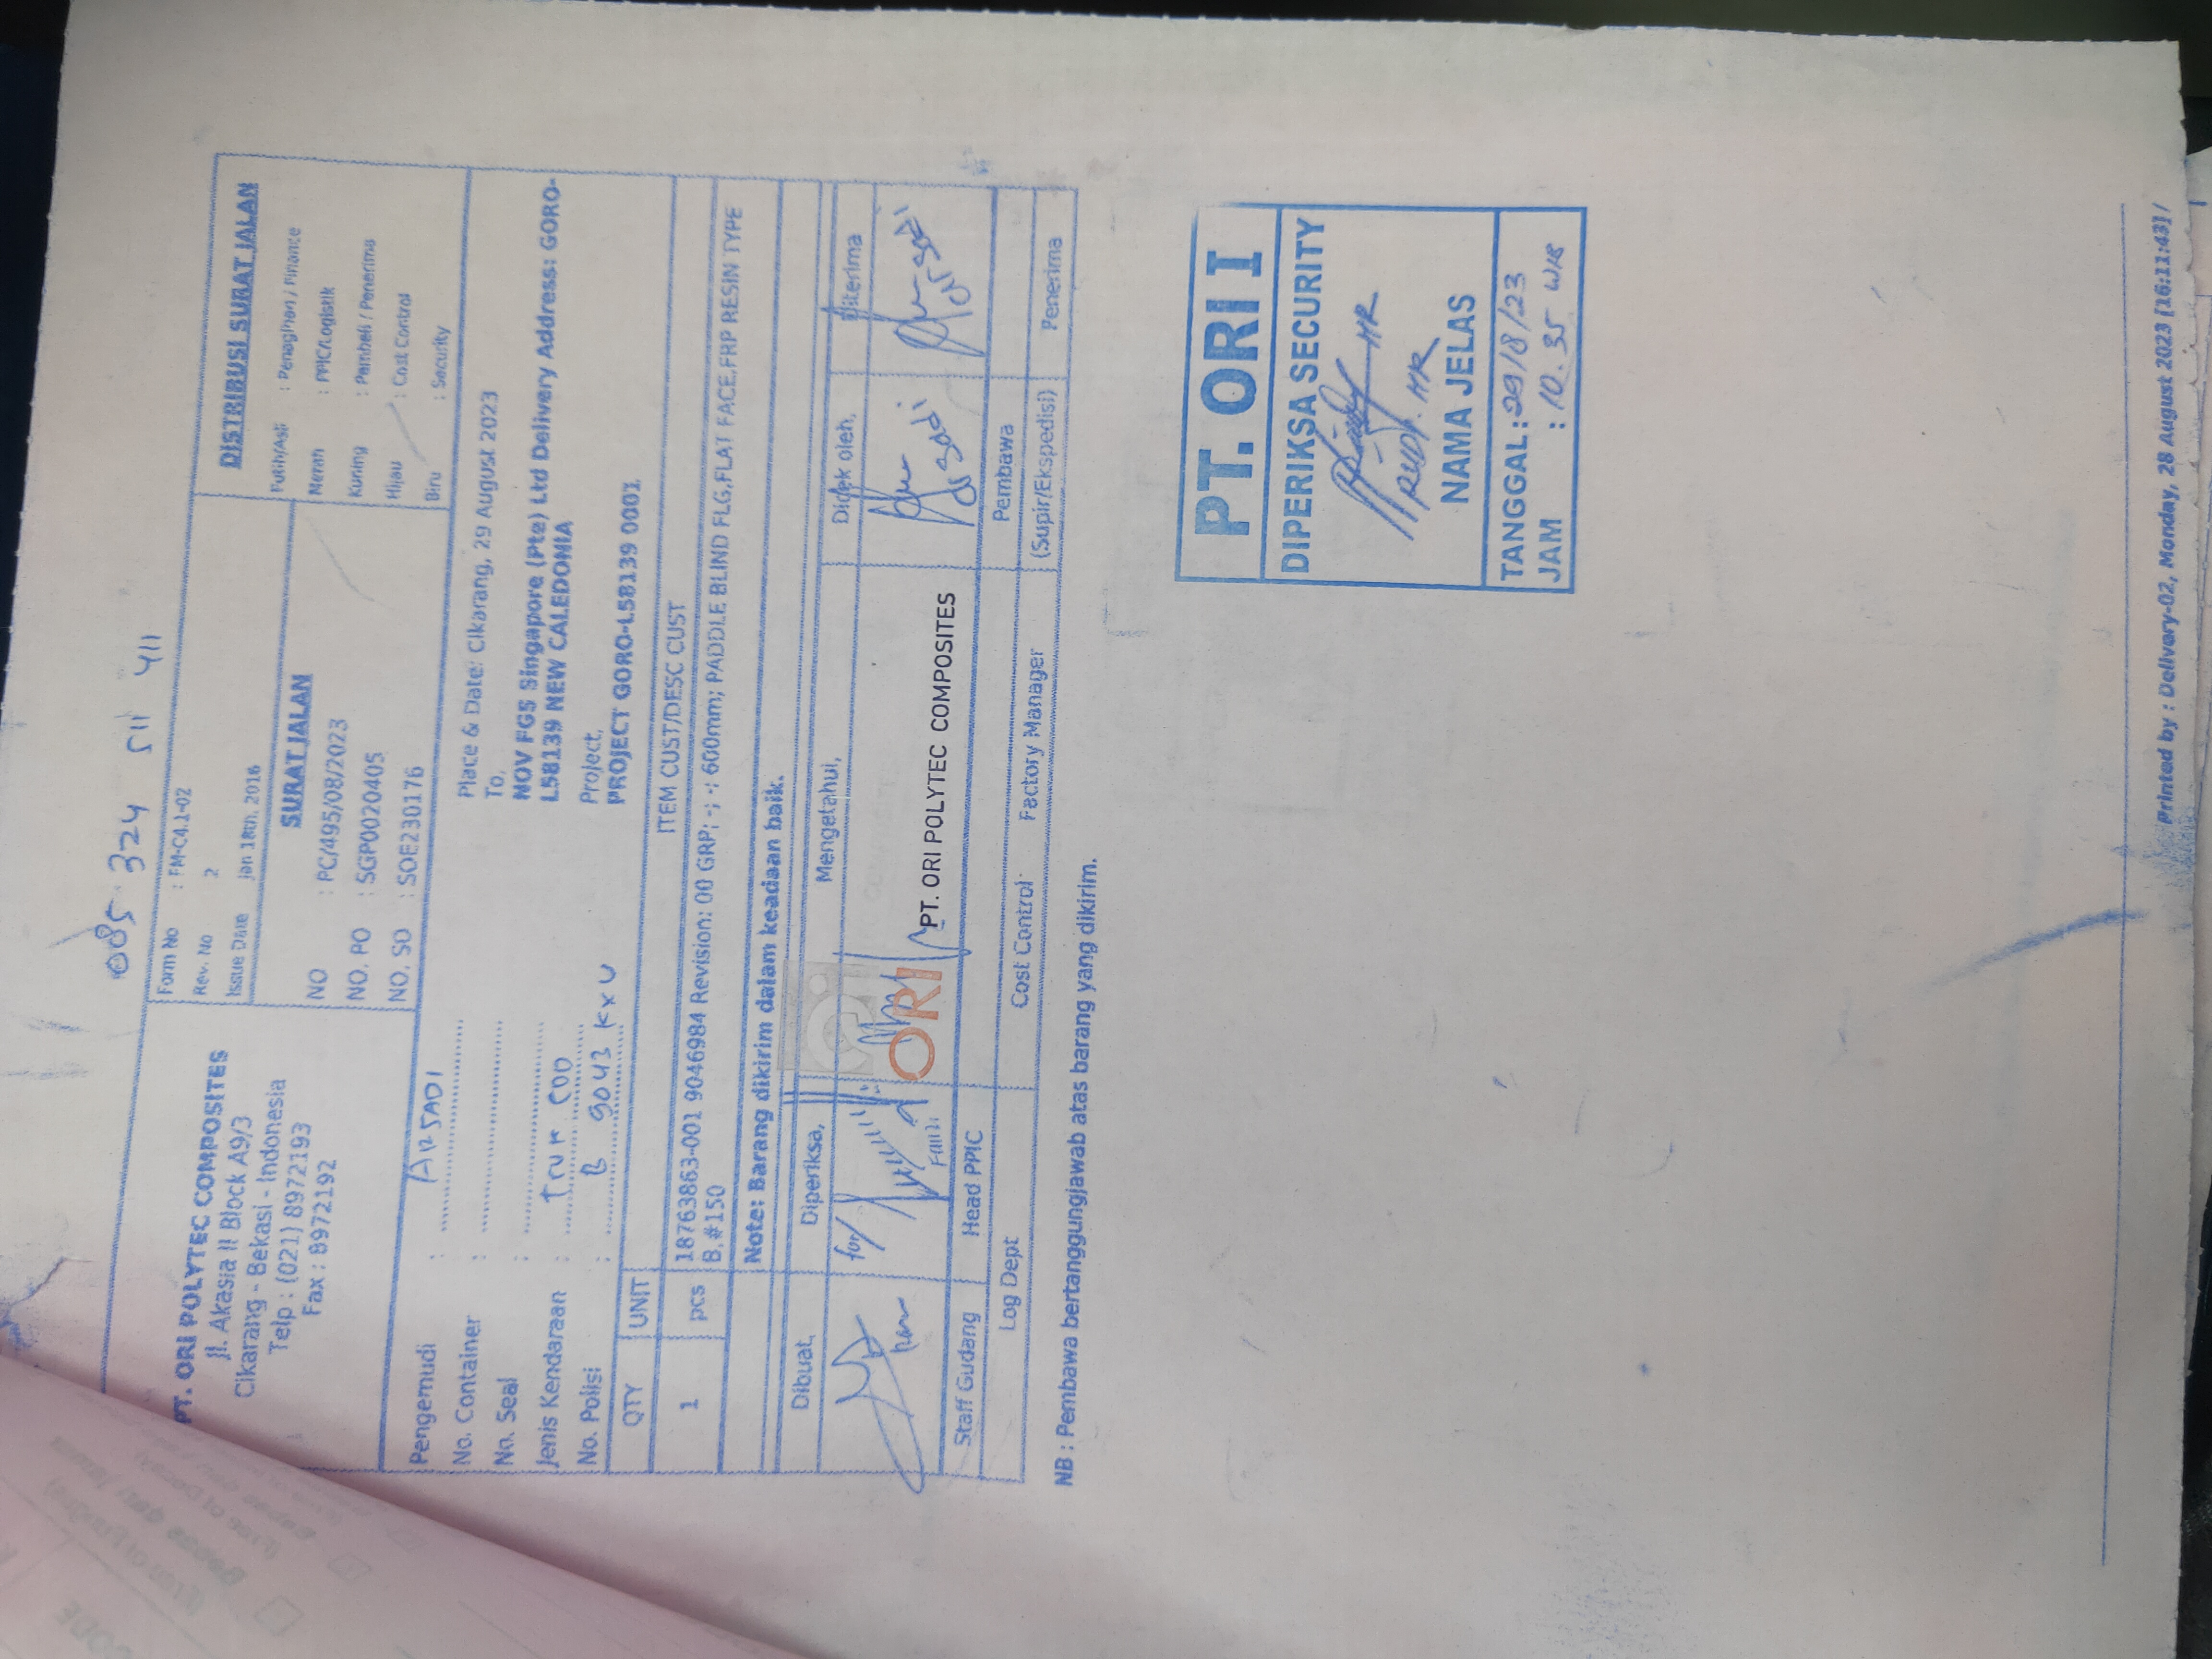 085 324 511 411
PT. ORI POLYTEC COMPOSITES
Jl. Akasia II Block A9/3
Cikarang - Bekasi - Indonesia
Telp : (021) 8972193
Fax : 8972192
Form No : FM-C4.1-02
Rev. No 2
Issue Date Jan 18th, 2016
SURAT JALAN
NO : PC/495/08/2023
NO. PO : SGP0020405
NO. SO : SOE230176
DISTRIBUSI SURAT JALAN
Putih/Asli : Penagihan / Finance
Merah : PPIC/Logistik
Kuning : Pembeli / Penerima
Hijau : Cost Control
Biru : Security
Pengemudi : ARSADI
No. Container :
No. Seal :
Jenis Kendaraan : truk CDD
No. Polisi : B 9043 KXU
Place & Date: Cikarang, 29 August 2023
To,
NOV FGS Singapore (Pte) Ltd Delivery Address: GORO-
L58139 NEW CALEDONIA
Project,
PROJECT GORO-L58139 0001
QTY UNIT ITEM CUST/DESC CUST
1 pcs 18763863-001 9046984 Revision: 00 GRP; -; -; 600mm; PADDLE BLIND FLG,FLAT FACE,FRP RESIN TYPE
B,#150
Note: Barang dikirim dalam keadaan baik.
Dibuat, Diperiksa, Mengetahui, Dicek oleh, Diterima
for
ORI PT. ORI POLYTEC COMPOSITES
Arsadi
Arsadi
Staff Gudang Head PPIC Cost Control Factory Manager Pembawa Penerima
Log Dept (Supir/Ekspedisi)
NB : Pembawa bertanggungjawab atas barang yang dikirim.
PT. ORI I
DIPERIKSA SECURITY
NAMA JELAS
TANGGAL : 29/8/23
JAM : 10.35 WIB
Printed by : Delivery-02, Monday, 28 August 2023 [16:11:43] /